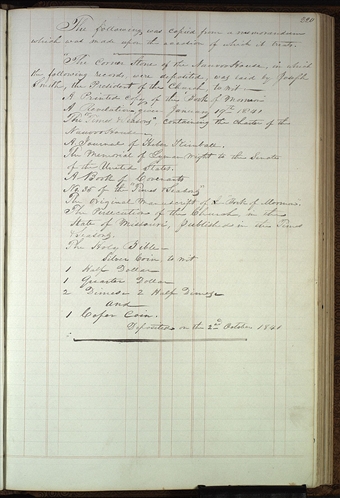 220
The following was copied from a memorandum
which was made upon the occasion of which it treats.
"The Corner Stone of the Nauvoo House, in which
the following records were deposited, was laid by Joseph
Smith, the President of the Church, to wit—
A Printed Copy of the "Book of Mormon
A Revelation, given January 19th 1841
The "Times & Seasons" containing the charter of the
Nauvoo House
A Journal of Heber C. Kimball.
The Memorial of Lyman Wight to the Senate
of the United States.
A Book of Covenants
No. 35 of the "Times & Seasons"
The Original Manuscript of the Book of Mormon.
The Persecutions of the Church, in the
State of Missouri, published in the Times
& Seasons.
The Holy Bible
Silver Coin to wit
1 Half Dollar
1 Quarter Dollar
2 Dimes 2 Half Dimes
and
1 Coper Coin.
Deposited on the 2nd October 1841